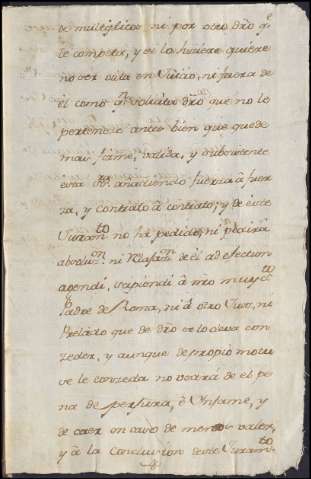 de multiplicos ni por otro dro qᵉ
le competa, y si lo hiciere quiere
no ser oida en Juicio, ni fuera de
el como qⁿ solicita dro que no le
pertenece antes bien que quede
mas firme, valida, y subsistente
esta añadiendo fuerza á fuer
za, y contrato á contrato; y de este
Juramᵗᵒ no há pedido, ni pedirá
absoluᵒⁿ ni Relajaᵒⁿ de el ad efectum
agendi, vᵉ á ntro muy sᵗᵒ
Padre de Roma, ni á otro Juez, ni
Prelado que de dro se lo deva con
zeder, y aunque de propio motu
se le conzeda no usará de el pe
na de perjura, é Infame, y
de caer en caso de menos valer,
y á la Conclusion deste Juramᵗᵒ